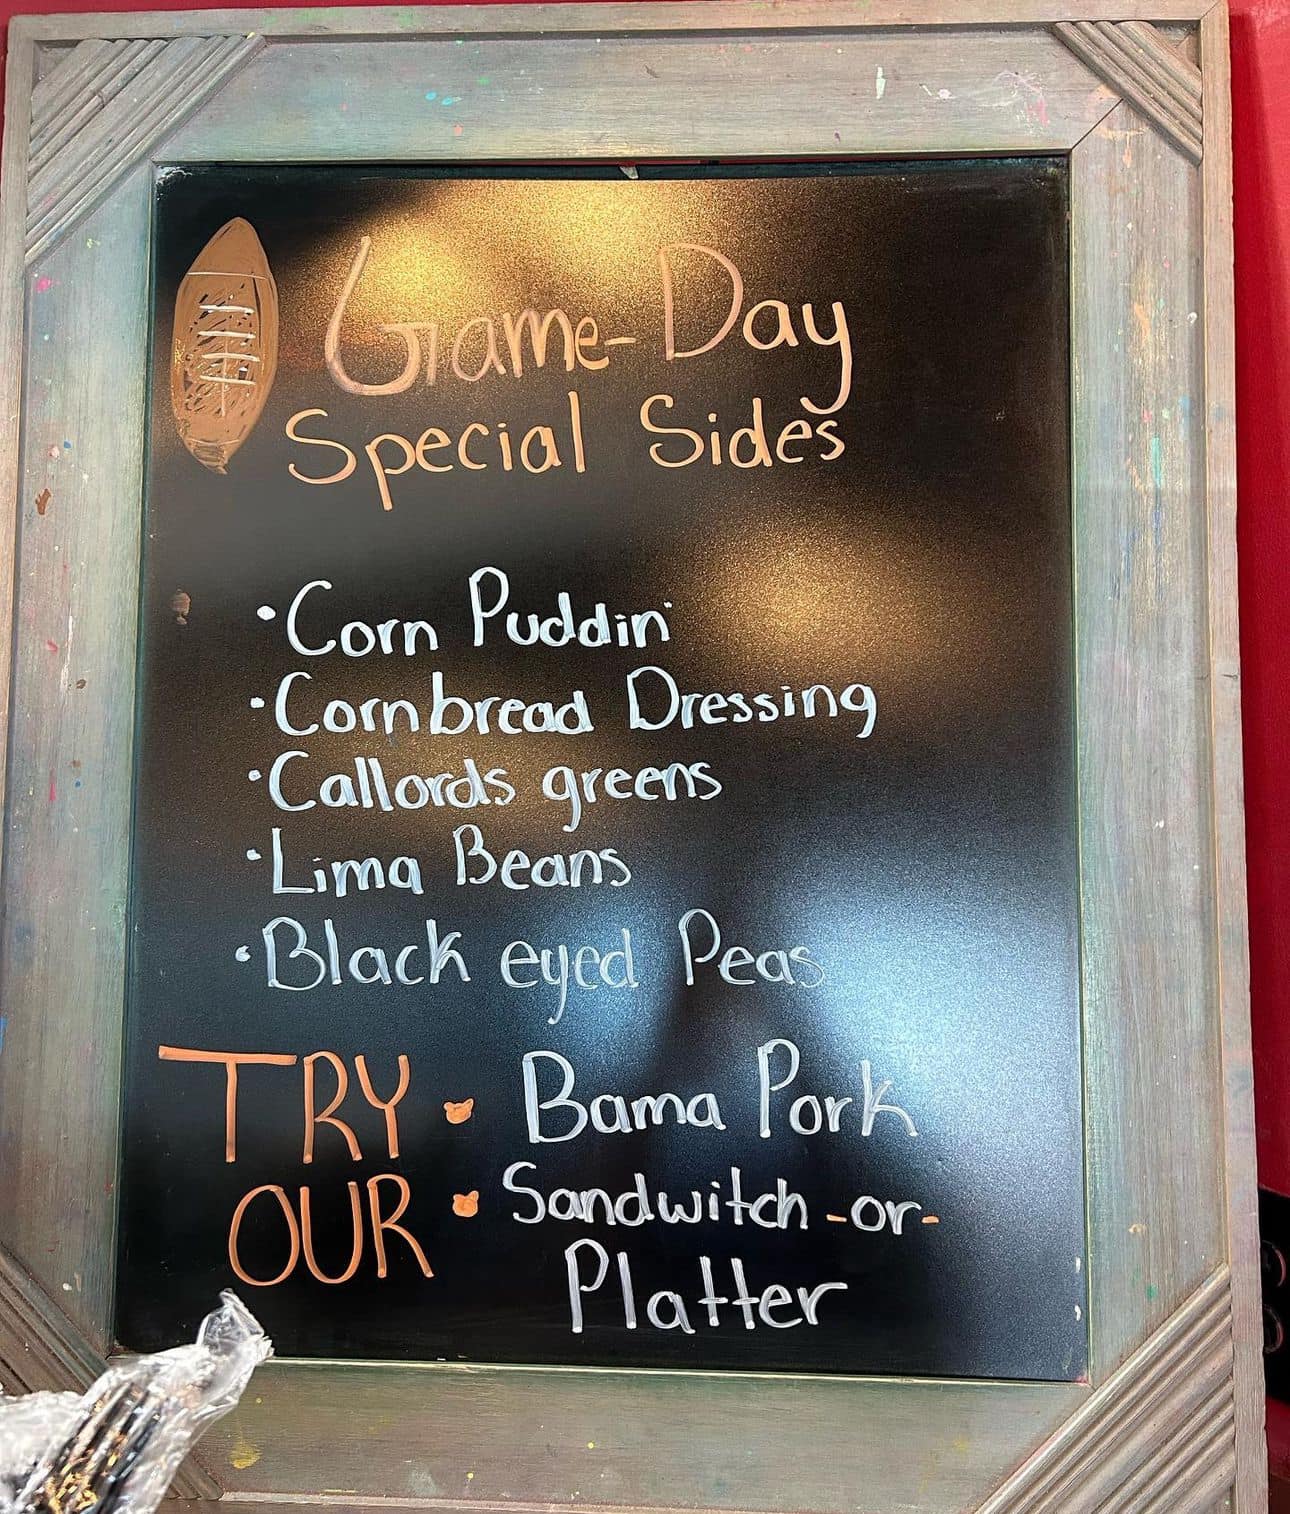 Game-Day
Special Sides
• Corn Puddin'
• Cornbread Dressing
• Callords greens
• Lima Beans
• Black eyed Peas
TRY • Bama Pork
OUR • Sandwitch -or-
Platter